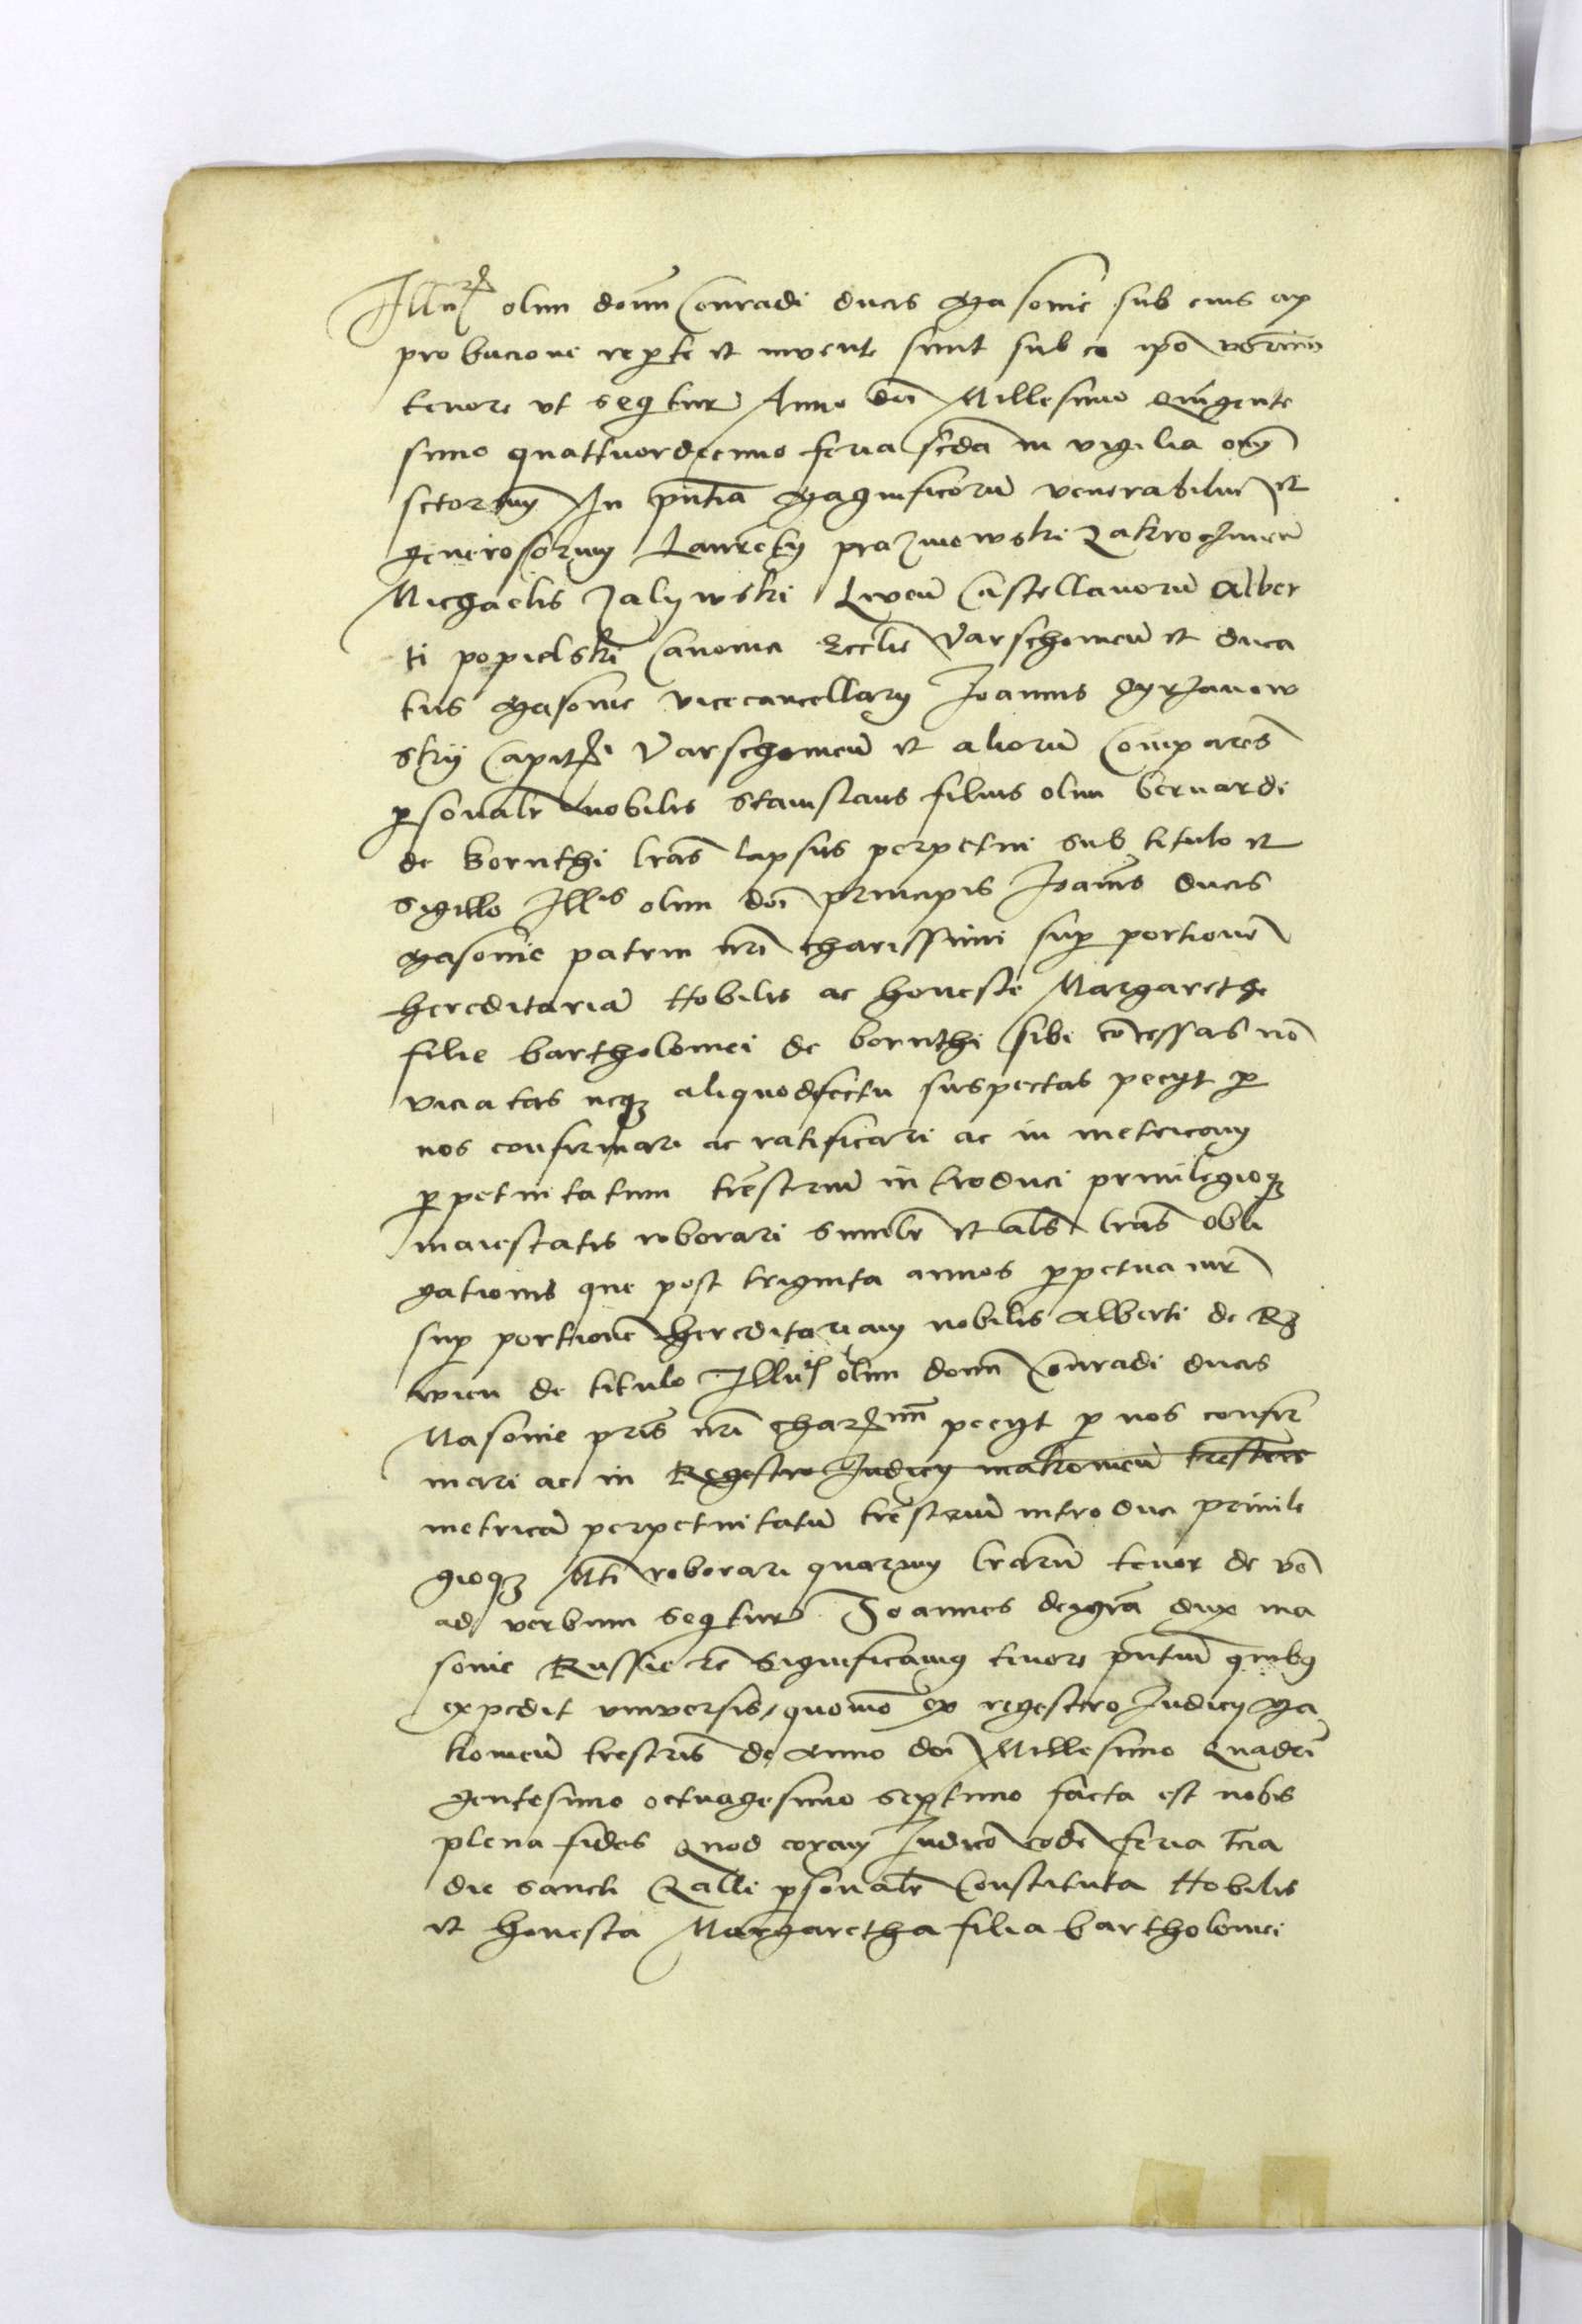 Illus olim domini Conradi ducis Masovie sub eius ap
probacione reperte et invente sunt sub eo ipso verborum
tenore ut sequitur Anno dni Millesimo Quingente
simo quattuordecimo feria scda in vigilia omniu
sctorum In pntia Magnificoru venerabiliu et
generosorum Laurety prazmowski Zakroczimen
Michaelis Zalywski Lyven Castellanoru Alber
ti popielski Canonici Ecclie Varschovien et duca
tus Masovie vicecancellary Joannis Dyrzanow
skij Capit Varschovien et aliorum Comparens
psonalr nobilis Stanislaus filius olim bernardi
de bornthi lras lapsus perpetui sub titulo et
sigillo Illis olim dni principis Joanis ducis
Masovie patrui nri charissimi sup portione
hereditaria Nobilis ac honeste Margarethe
filie bartholomei de bornthi sibi concessas no
viciatas neqz aliquo defectu suspectas peciit p
nos confirmari ac ratificari ac in metricam
ppetuitatum trestrium introduci privilegioqz
maiestatis roborari similr et als lras obli
gationis que post triginta annos ppetuantr
sup portione hereditariam nobilis Alberti de
de titulo Illus olim domini Conradi ducis
Masovie pris nri char mi peciit p nos confir
mari ac in Regestro Judicy makovien trestris
metrica perpetuitatu trestrium introduci privile
gioqz Mtis roborari quarum lraru tenor de vbo
ad verbum sequitur Joannes dei gra dux ma
sovie Russie etc Significamus tenore pntium quibus
expedit universis, quomo ex regestro Judicy Ma
kovien trestris de Anno dni Millesimo Quadri
gentesimo octuagesimo septimo facta est nobis
plena fides Quod coram Judicio eode feria tcia
die sancti Galli psonalr Constituta Nobilis
et honesta Margaretha filia bartholomei